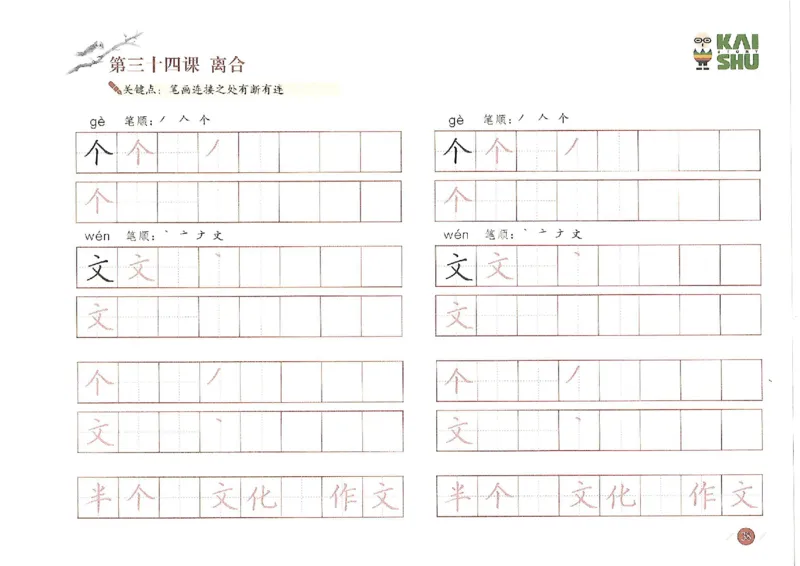 第三十四课 离合
KAI
STORY
SHU
关键点：笔画连接之处有断有连
gè 笔顺：丿 人 个
个 个 丿
个
wén 笔顺：丶 亠 ナ 文
文 文 丶
文
个 丿
文 丶
半 个 文 化 作 文
gè 笔顺：丿 人 个
个 个 丿
个
wén 笔顺：丶 亠 ナ 文
文 文 丶
文
个 丿
文 丶
半 个 文 化 作 文